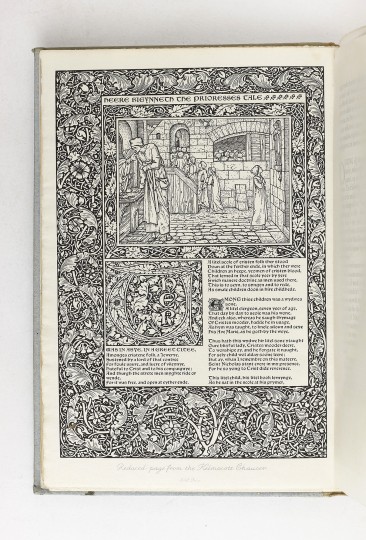 HEERE BIGYNNETH THE PRIORESSES TALE
THER
WAS IN ASYE, IN A GREET CITEE,
Amonges cristene folk, a Jewerye,
Sustened by a lord of that contree
For foule usure, and lucre of vileynye,
Hateful to Crist and to his compaignye;
And thurgh the strete men myghte ride or
wende,
For it was free, and open at eyther ende.
A litel scole of cristen folk ther stood
Doun at the ferther ende, in which ther were
Children an heepe, ycomen of cristen blood,
That lerned in that scole yeer by yere
Swich manere doctrine as men used there,
This is to seyn, to syngen and to rede,
As smale children doon in hire childhede.
AMONG thise children was a wydwes
sone,
A litel clergeon, seven yeer of age,
That day by day to scole was his wone,
And eek also, whereas he saugh thymage
Of Cristes mooder, hadde he in usage,
As hym was taught, to knele adoun and seye
His Ave Marie, as he goth by the weye.
Thus hath this wydwe hir litel sone ytaught
Oure blisful lady, Cristes mooder deere,
To worshipe ay, and he forgate it naught,
For sely child wol alday soone leere;
But ay, whan I remembre on this mateere,
Seint Nicholas stant evere in my presence,
For he so yong to Crist dide reverence.
This litel child, his litel book lernynge,
As he sat in the scole at his prymer,
Reduced page from the Kelmscott Chaucer